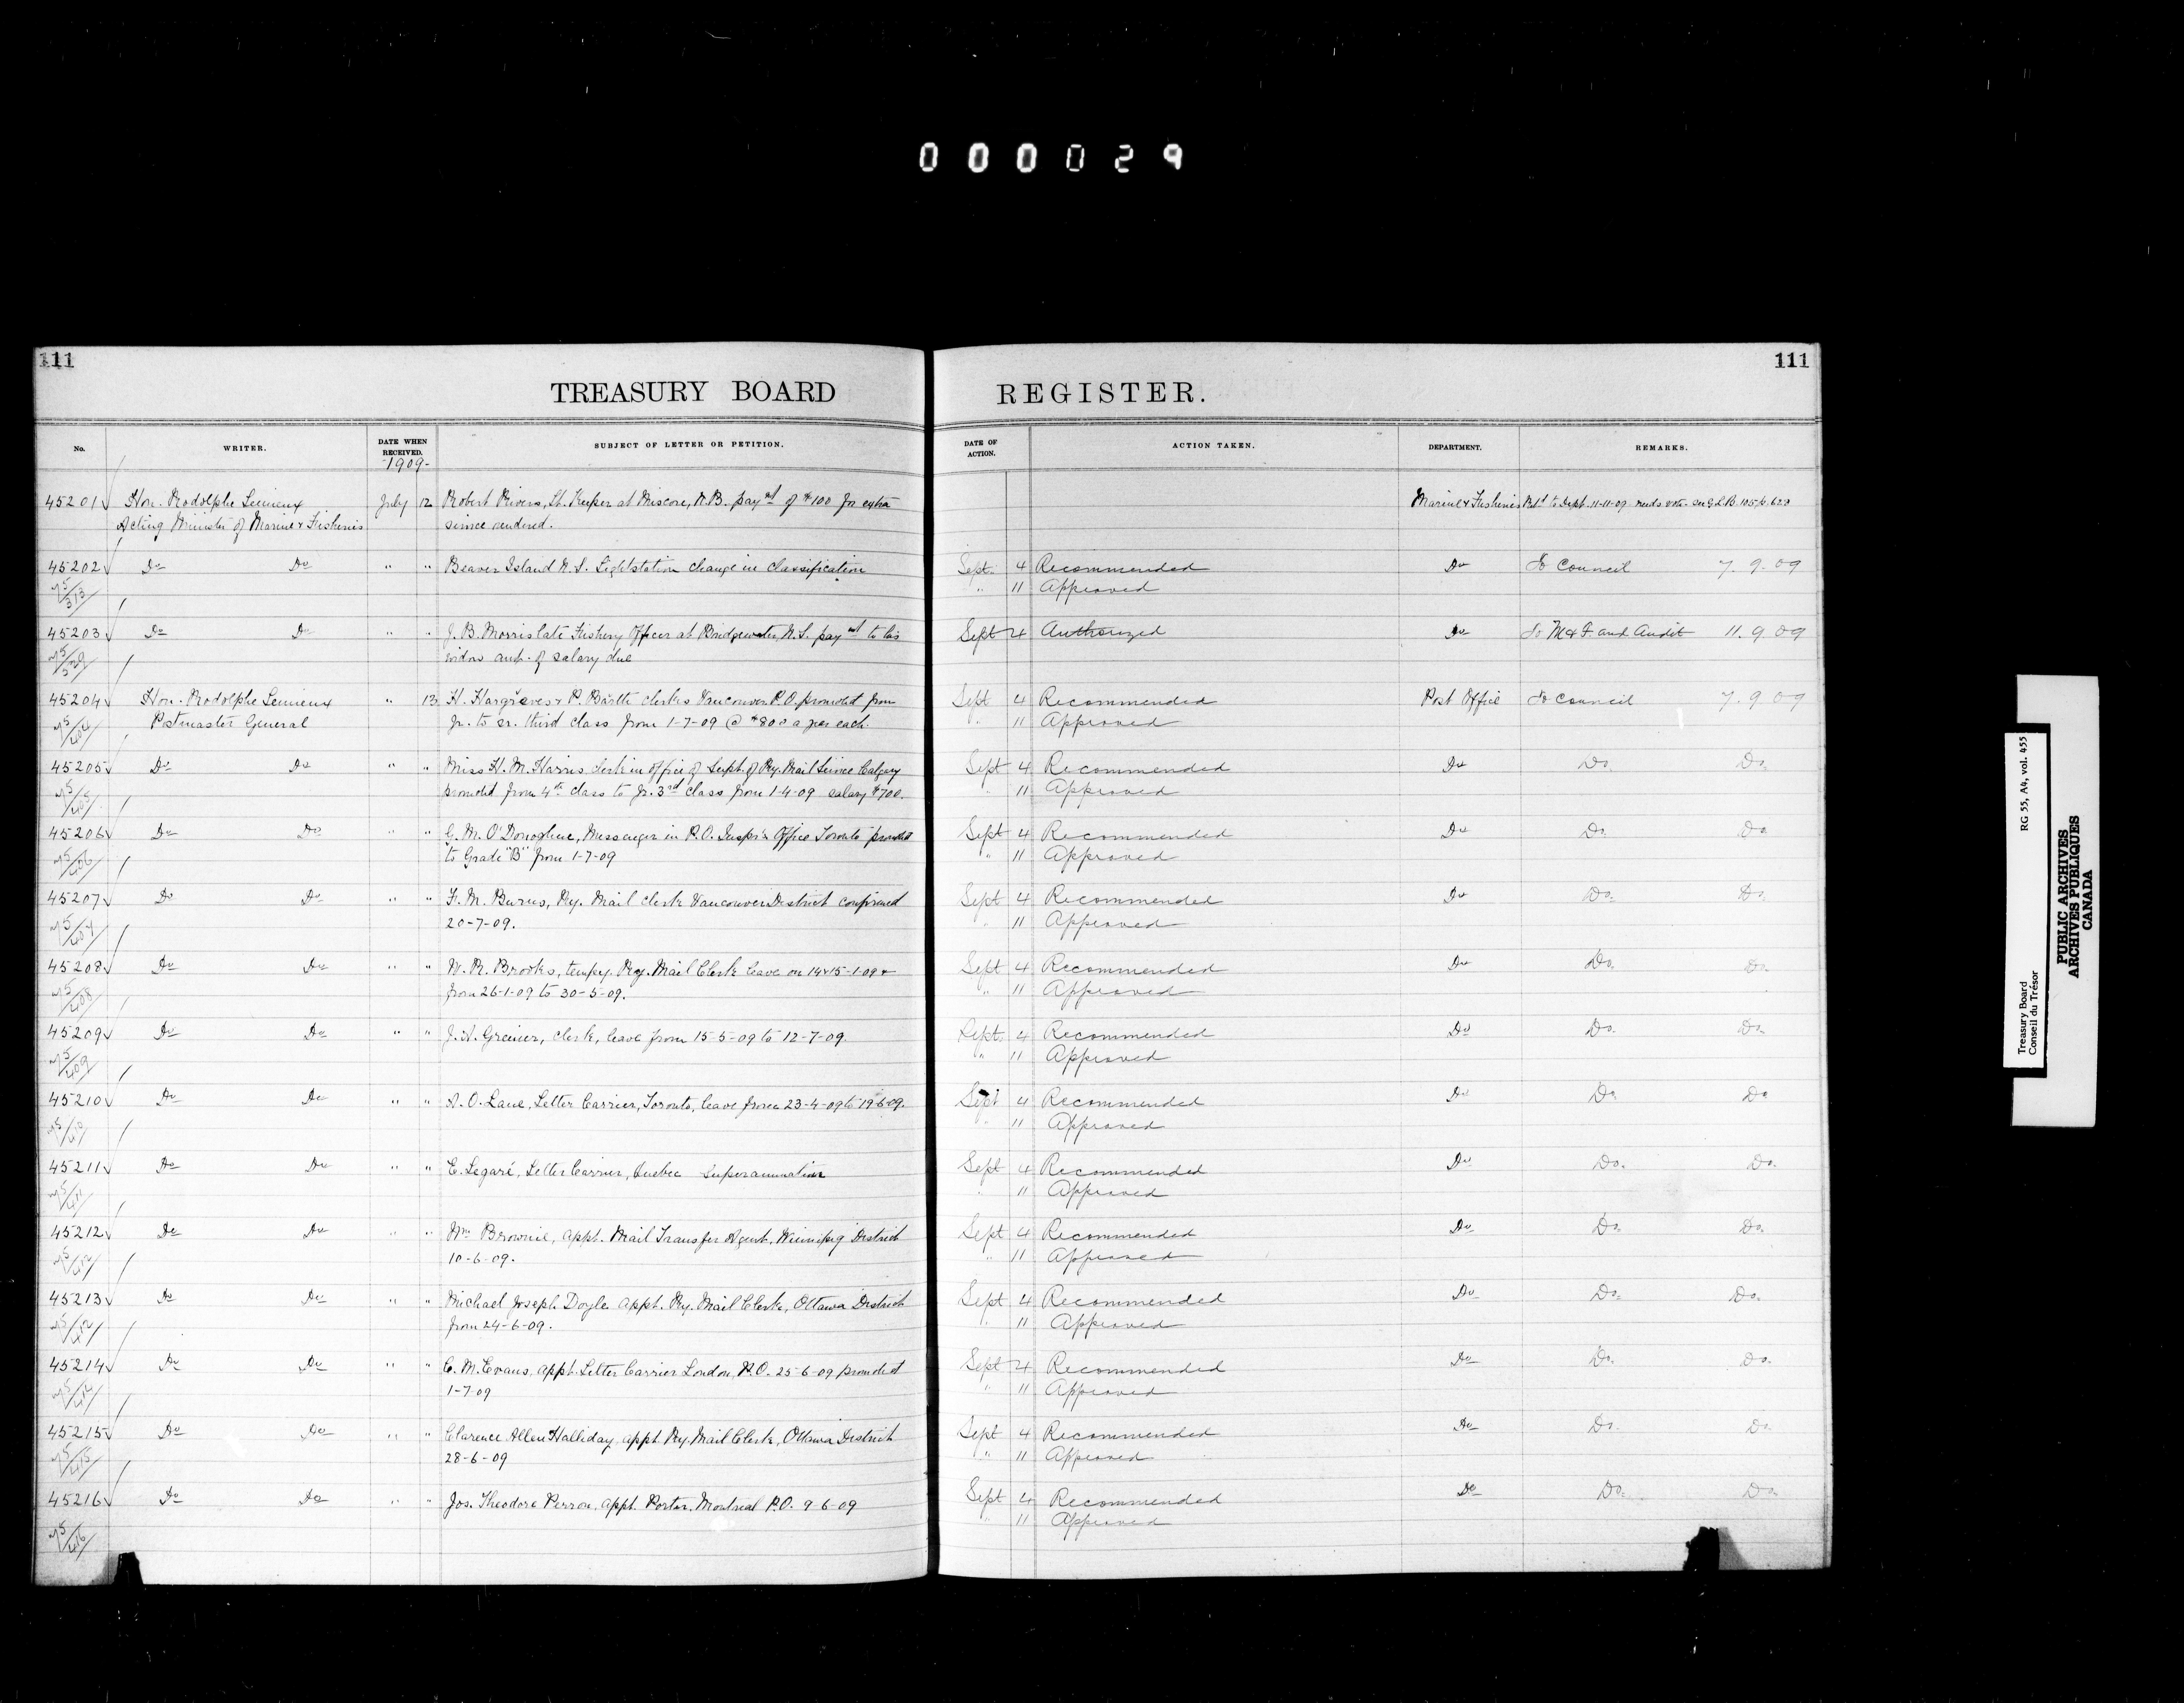 000029
111
111
TREASURY BOARD REGISTER.
No. WRITER. DATE WHEN RECEIVED. SUBJECT OF LETTER OR PETITION. DATE OF ACTION. ACTION TAKEN. DEPARTMENT. REMARKS.
-1909-
45201 Hon. Rodolphe Lemieux July 12 Robert Rivers, Lt. Keeper at Miscou, N.B. paymt of $100 for extra Marine & Fisheries Rtd to Dept. 11-11-09 needs vote. See G.L.B. 105 p. 628
Acting Minister of Marine & Fisheries service rendered.
45202 Do Do " " Beaver Island N.S. Lightstation change in classification Sept. 4 Recommended Do To Council 7.9.09
" 11 Approved
45203 Do Do " " J. B. Morris late Fishery Officer at Bridgewater, N.S. paymt to his Sept 4 Authorized Do To M & F. and Audit 11.9.09
widow amt. of salary due
45204 Hon. Rodolphe Lemieux " 13 H. Hargreves & P. Barthe clerks Vancouver P.O. promoted from Sept 4 Recommended Post Office To Council 7.9.09
Postmaster General Jr. to sr. third class from 1-7-09 @ $800 a year each. " 11 Approved
45205 Do Do " " Miss H. M. Harris clerk in office of Supt. of Ry. Mail Service Calgary Sept 4 Recommended Do Do. Do.
promoted from 4th class to Jr. 3rd class from 1-4-09 salary $700. " 11 Approved
45206 Do Do " " G. M. O'Donoghue, Messenger in P.O. Inspr's Office Toronto promoted Sept 4 Recommended Do Do. Do
to Grade "B" from 1-7-09 " 11 Approved
45207 Do Do " " F. M. Burns, Ry. Mail clerk Vancouver District confirmed Sept 4 Recommended Do Do. Do.
20-7-09. " 11 Approved
45208 Do Do " " W. R. Brooks, tempy. Ry. Mail Clerk leave on 14&15-1-09 & Sept 4 Recommended Do Do. Do.
from 26-1-09 to 30-5-09. " 11 Approved
45209 Do Do " " J. A. Grenier, clerk, leave from 15-5-09 to 12-7-09. Sept. 4 Recommended Do Do. Do.
" 11 Approved
45210 Do Do " " A. O. Lane, Letter Carrier, Toronto, leave from 23-4-09 to 19-6-09. Sept 4 Recommended Do Do. Do
" 11 Approved
45211 Do Do " " E. Legaré, Letter Carrier, Quebec superannuation Sept 4 Recommended Do Do. Do.
" 11 Approved
45212 Do Do " " Wm Brownie, appt. Mail Transfer Agent, Winnipeg District Sept 4 Recommended Do Do. Do.
10-6-09. " 11 Approved
45213 Do Do " " Michael Joseph Doyle appt. Ry. Mail Clerk, Ottawa District Sept 4 Recommended Do Do. Do.
from 24-6-09. " 11 Approved
45214 Do Do " " C. M. Evans, appt. Letter Carrier London, P.O. 25-6-09 promoted Sept 4 Recommended Do Do. Do.
1-7-09 " 11 Approved
45215 Do Do " " Clarence Allen Halliday, appt Ry. Mail Clerk, Ottawa District Sept 4 Recommended Do Do. Do.
28-6-09 " 11 Approved
45216 Do Do " " Jos. Theodore Perron, appt. Porter, Montreal P.O. 9-6-09 Sept 4 Recommended Do Do. Do.
" 11 Approved
Treasury Board RG 55, A4, vol. 455
Conseil du Trésor
PUBLIC ARCHIVES
ARCHIVES PUBLIQUES
CANADA